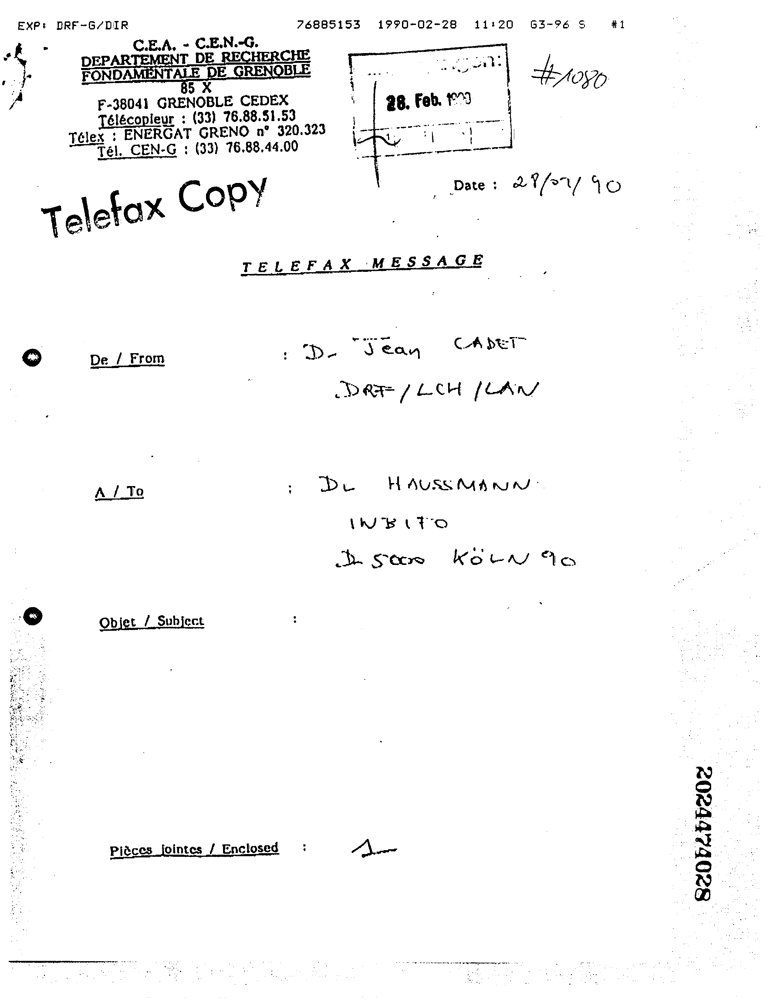 EXP: DRF-G/DIR 76885153 1990-02-28 11:20 G3-96 S #1
C.E.A. - C.E.N.-G.
DEPARTEMENT DE RECHERCHE
FONDAMENTALE DE GRENOBLE
85 X
F-38041 GRENOBLE CEDEX
Télécopieur : (33) 76.88.51.53
Télex : ENERGAT GRENO n° 320.323
Tél. CEN-G : (33) 76.88.44.00
28. Feb. 1990
#1080
Date : 28/02/90
Telefax Copy
TELEFAX MESSAGE
De / From : Dr Jean CADET
DRF/LCH/LAN
A / To : Dr HAUSSMANN
INBIFO
D 5000 KÖLN 90
Objet / Subject :
Pièces jointes / Enclosed : 1
2024474028